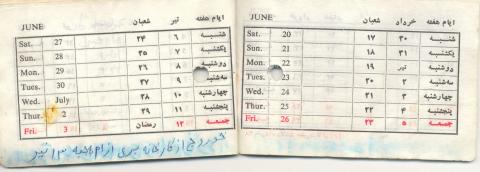 ایام هفته خرداد شعبان JUNE
شنبه ۳۰ ۱۷ 20 Sat.
یکشنبه ۳۱ ۱۸ 21 Sun.
دوشنبه تیر ۱۹ 22 Mon.
سه‌شنبه ۲ ۲۰ 23 Tues.
چهارشنبه ۳ ۲۱ 24 Wed.
پنجشنبه ۴ ۲۲ 25 Thur.
جمعه ۵ ۲۳ 26 Fri.
ایام هفته تیر شعبان JUNE
شنبه ۶ ۲۴ 27 Sat.
یکشنبه ۷ ۲۵ 28 Sun.
دوشنبه ۸ ۲۶ 29 Mon.
سه‌شنبه ۹ ۲۷ 30 Tues.
چهارشنبه ۱۰ ۲۸ July Wed.
پنجشنبه ۱۱ ۲۹ 2 Thur.
جمعه ۱۲ رمضان 3 Fri.
از کارخانه ۱۳ تیر